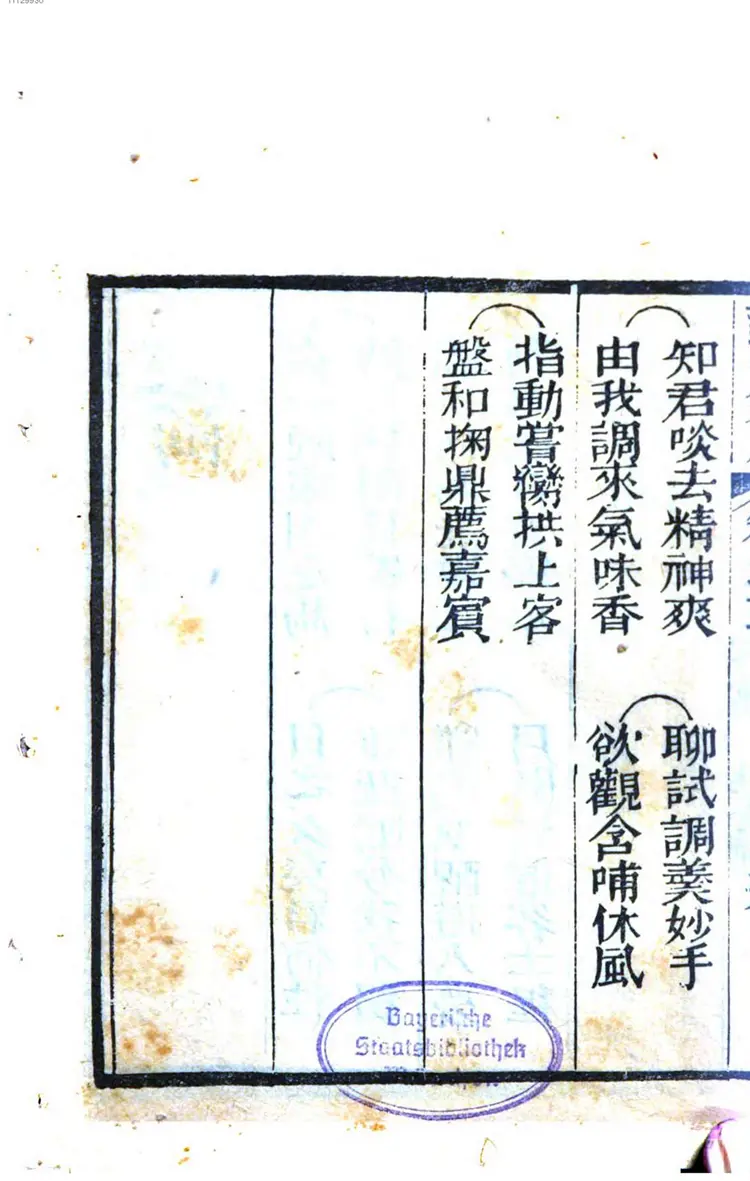 知君啖去精神爽
由我調來氣味香
聊試調羹妙手
欲觀含哺休風
指動嘗臠拱上客
盤和掬鼎薦嘉賓
Bayerische
Staatsbibliothek